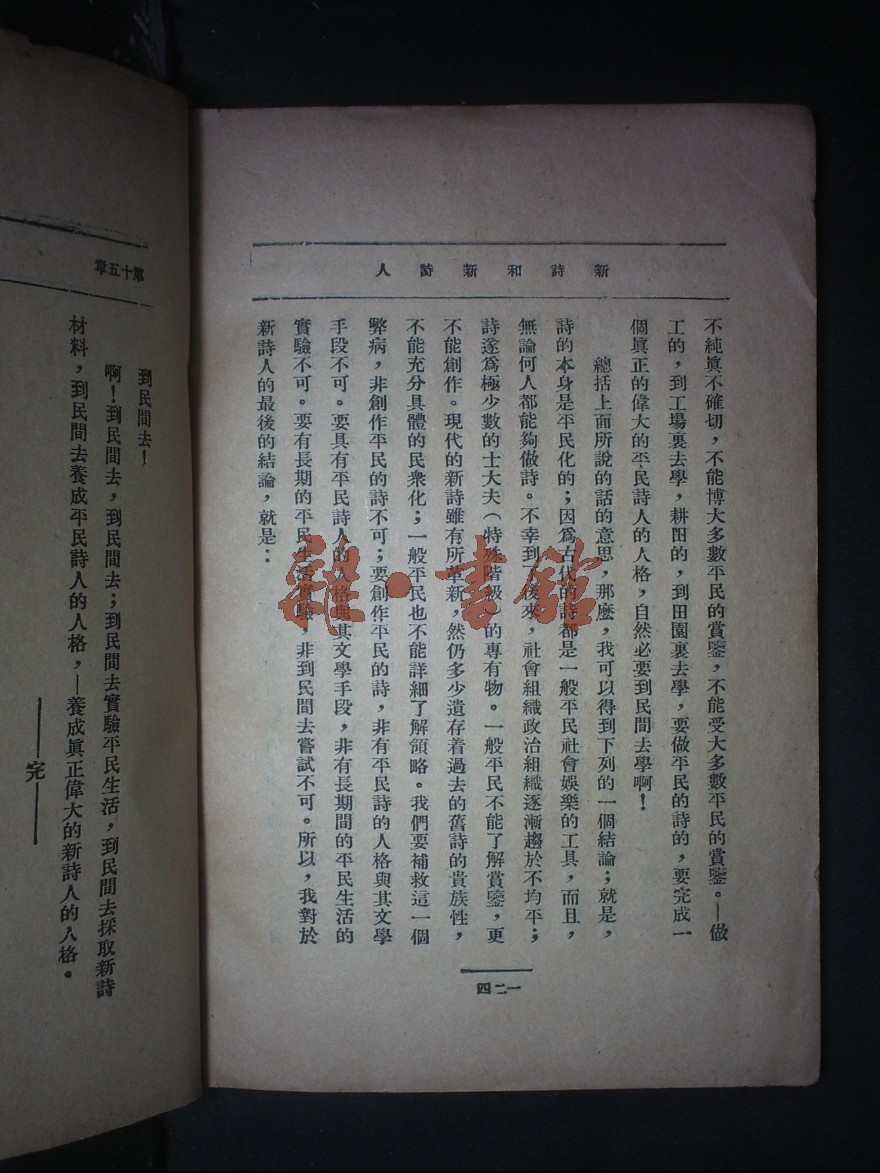 新詩和新詩人
不純眞不確切，不能博大多數平民的賞鑒，不能受大多數平民的賞鑒。—做
工的，到工場裏去學，耕田的，到田園裏去學，要做平民的詩的，要完成一
個眞正的偉大的平民詩人的人格，自然必要到民間去學啊！
總括上面所說的話的意思，那麼，我可以得到下列的一個結論；就是，
詩的本身是平民化的；因爲古代的詩都是一般平民社會娛樂的工具，而且，
無論何人都能夠做詩。不幸到了後來，社會組織政治組織逐漸趨於不均平；
詩遂爲極少數的士大夫（特殊階級）的專有物。一般平民不能了解賞鑒，更
不能創作。現代的新詩雖有所革新，然仍多少遺存着過去的舊詩的貴族性，
不能充分具體的民衆化；一般平民也不能詳細了解領略。我們要補救這一個
弊病，非創作平民的詩不可；要創作平民的詩，非有平民詩的人格與其文學
手段不可。要具有平民詩人的人格與其文學手段，非有長期間的平民生活的
實驗不可。要有長期的平民生活實驗，非到民間去嘗試不可。所以，我對於
新詩人的最後的結論，就是：
一二四
第十五章
到民間去！
啊！到民間去，到民間去；到民間去實驗平民生活，到民間去採取新詩
材料，到民間去養成平民詩人的人格，—養成眞正偉大的新詩人的人格。
——完——
雜·書館